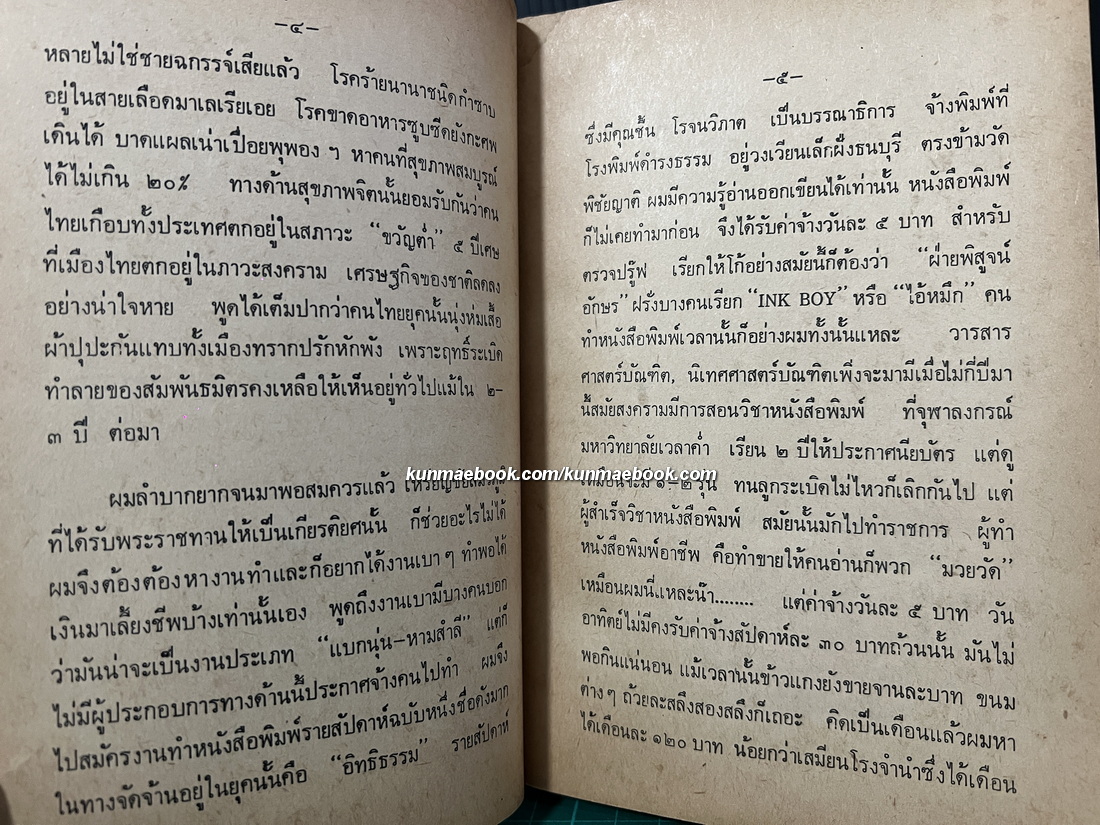 —๔—
หลายไม่ใช่ชายฉกรรจ์เสียแล้ว โรคร้ายนานาชนิดกำซาบ
อยู่ในสายเลือดมาเลเรียเอย โรคขาดอาหารซูบซีดยังกะศพ
เดินได้ บาดแผลเน่าเปื่อยพุพอง ๆ หาคนที่สุขภาพสมบูรณ์
ได้ไม่เกิน ๒๐% ทางด้านสุขภาพจิตนั้นยอมรับกันว่าคน
ไทยเกือบทั้งประเทศตกอยู่ในสภาวะ “ขวัญต่ำ” ๕ ปีเศษ
ที่เมืองไทยตกอยู่ในภาวะสงคราม เศรษฐกิจของชาติลดลง
อย่างน่าใจหาย พูดได้เต็มปากว่าคนไทยยุคนั้นนุ่งห่มเสื้อ
ผ้าปุปะกันแทบทั้งเมืองทรากปรักหักพัง เพราะฤทธิ์ระเบิด
ทำลายของสัมพันธมิตรคงเหลือให้เห็นอยู่ทั่วไปแม้ใน ๒-
๓ ปี ต่อมา
ผมลำบากยากจนมาพอสมควรแล้ว
ที่ได้รับพระราชทานให้เป็นเกียรติยศนั้น ก็ช่วยอะไรไม่ได้
ผมจึงต้องต้องหางานทำและก็อยากได้งานเบา ๆ ทำพอได้
เงินมาเลี้ยงชีพบ้างเท่านั้นเอง พูดถึงงานเบามีบางคนบอก
ว่ามันน่าจะเป็นงานประเภท “แบกนุ่น-หามสำลี” แต่ก็
ไม่มีผู้ประกอบการทางด้านนี้ประกาศจ้างคนไปทำ ผมจึง
ไปสมัครงานทำหนังสือพิมพ์รายสัปดาห์ฉบับหนึ่งชื่อดังมาก
ในทางจัดจ้านอยู่ในยุคนั้นคือ “อิทธิธรรม” รายสัปดาห์
—๕—
ซึ่งมีคุณชั้น โรจนวิภาต เป็นบรรณาธิการ จ้างพิมพ์ที่
โรงพิมพ์ดำรงธรรม อยู่วงเวียนเล็กฝั่งธนบุรี ตรงข้ามวัด
พิชัยญาติ ผมมีความรู้อ่านออกเขียนได้เท่านั้น หนังสือพิมพ์
ก็ไม่เคยทำมาก่อน จึงได้รับค่าจ้างวันละ ๕ บาท สำหรับ
ตรวจปรู๊ฟ เรียกให้โก้อย่างสมัยนี้ก็ต้องว่า “ฝ่ายพิสูจน์
อักษร” ฝรั่งบางคนเรียก “INK BOY” หรือ “ไอ้หมึก” คน
ทำหนังสือพิมพ์เวลานั้นก็อย่างผมทั้งนั้นแหละ วารสาร
ศาสตร์บัณฑิต, นิเทศศาสตร์บัณฑิตเพิ่งจะมามีเมื่อไม่กี่ปีมา
นี้สมัยสงครามมีการสอนวิชาหนังสือพิมพ์ ที่จุฬาลงกรณ์
มหาวิทยาลัยเวลาค่ำ เรียน ๒ ปีให้ประกาศนียบัตร แต่ดู
kunmaebook.com/kunmaebook.com
เหมือนจะมี ๑-๒ รุ่น ทนลูกระเบิดไม่ไหวก็เลิกกันไป แต่
ผู้สำเร็จวิชาหนังสือพิมพ์ สมัยนั้นมักไปทำราชการ ผู้ทำ
หนังสือพิมพ์อาชีพ คือทำขายให้คนอ่านก็พวก “มวยวัด”
เหมือนผมนี่แหละน๊า........ แต่ค่าจ้างวันละ ๕ บาท วัน
อาทิตย์ไม่มีคงรับค่าจ้างสัปดาห์ละ ๓๐ บาทถ้วนนั้น มันไม่
พอกินแน่นอน แม้เวลานั้นข้าวแกงยังขายจานละบาท ขนม
ต่างๆ ถ้วยละสลึงสองสลึงก็เถอะ คิดเป็นเดือนแล้วผมหา
ได้เดือนละ ๑๒๐ บาท น้อยกว่าเสมียนโรงจำนำซึ่งได้เดือน